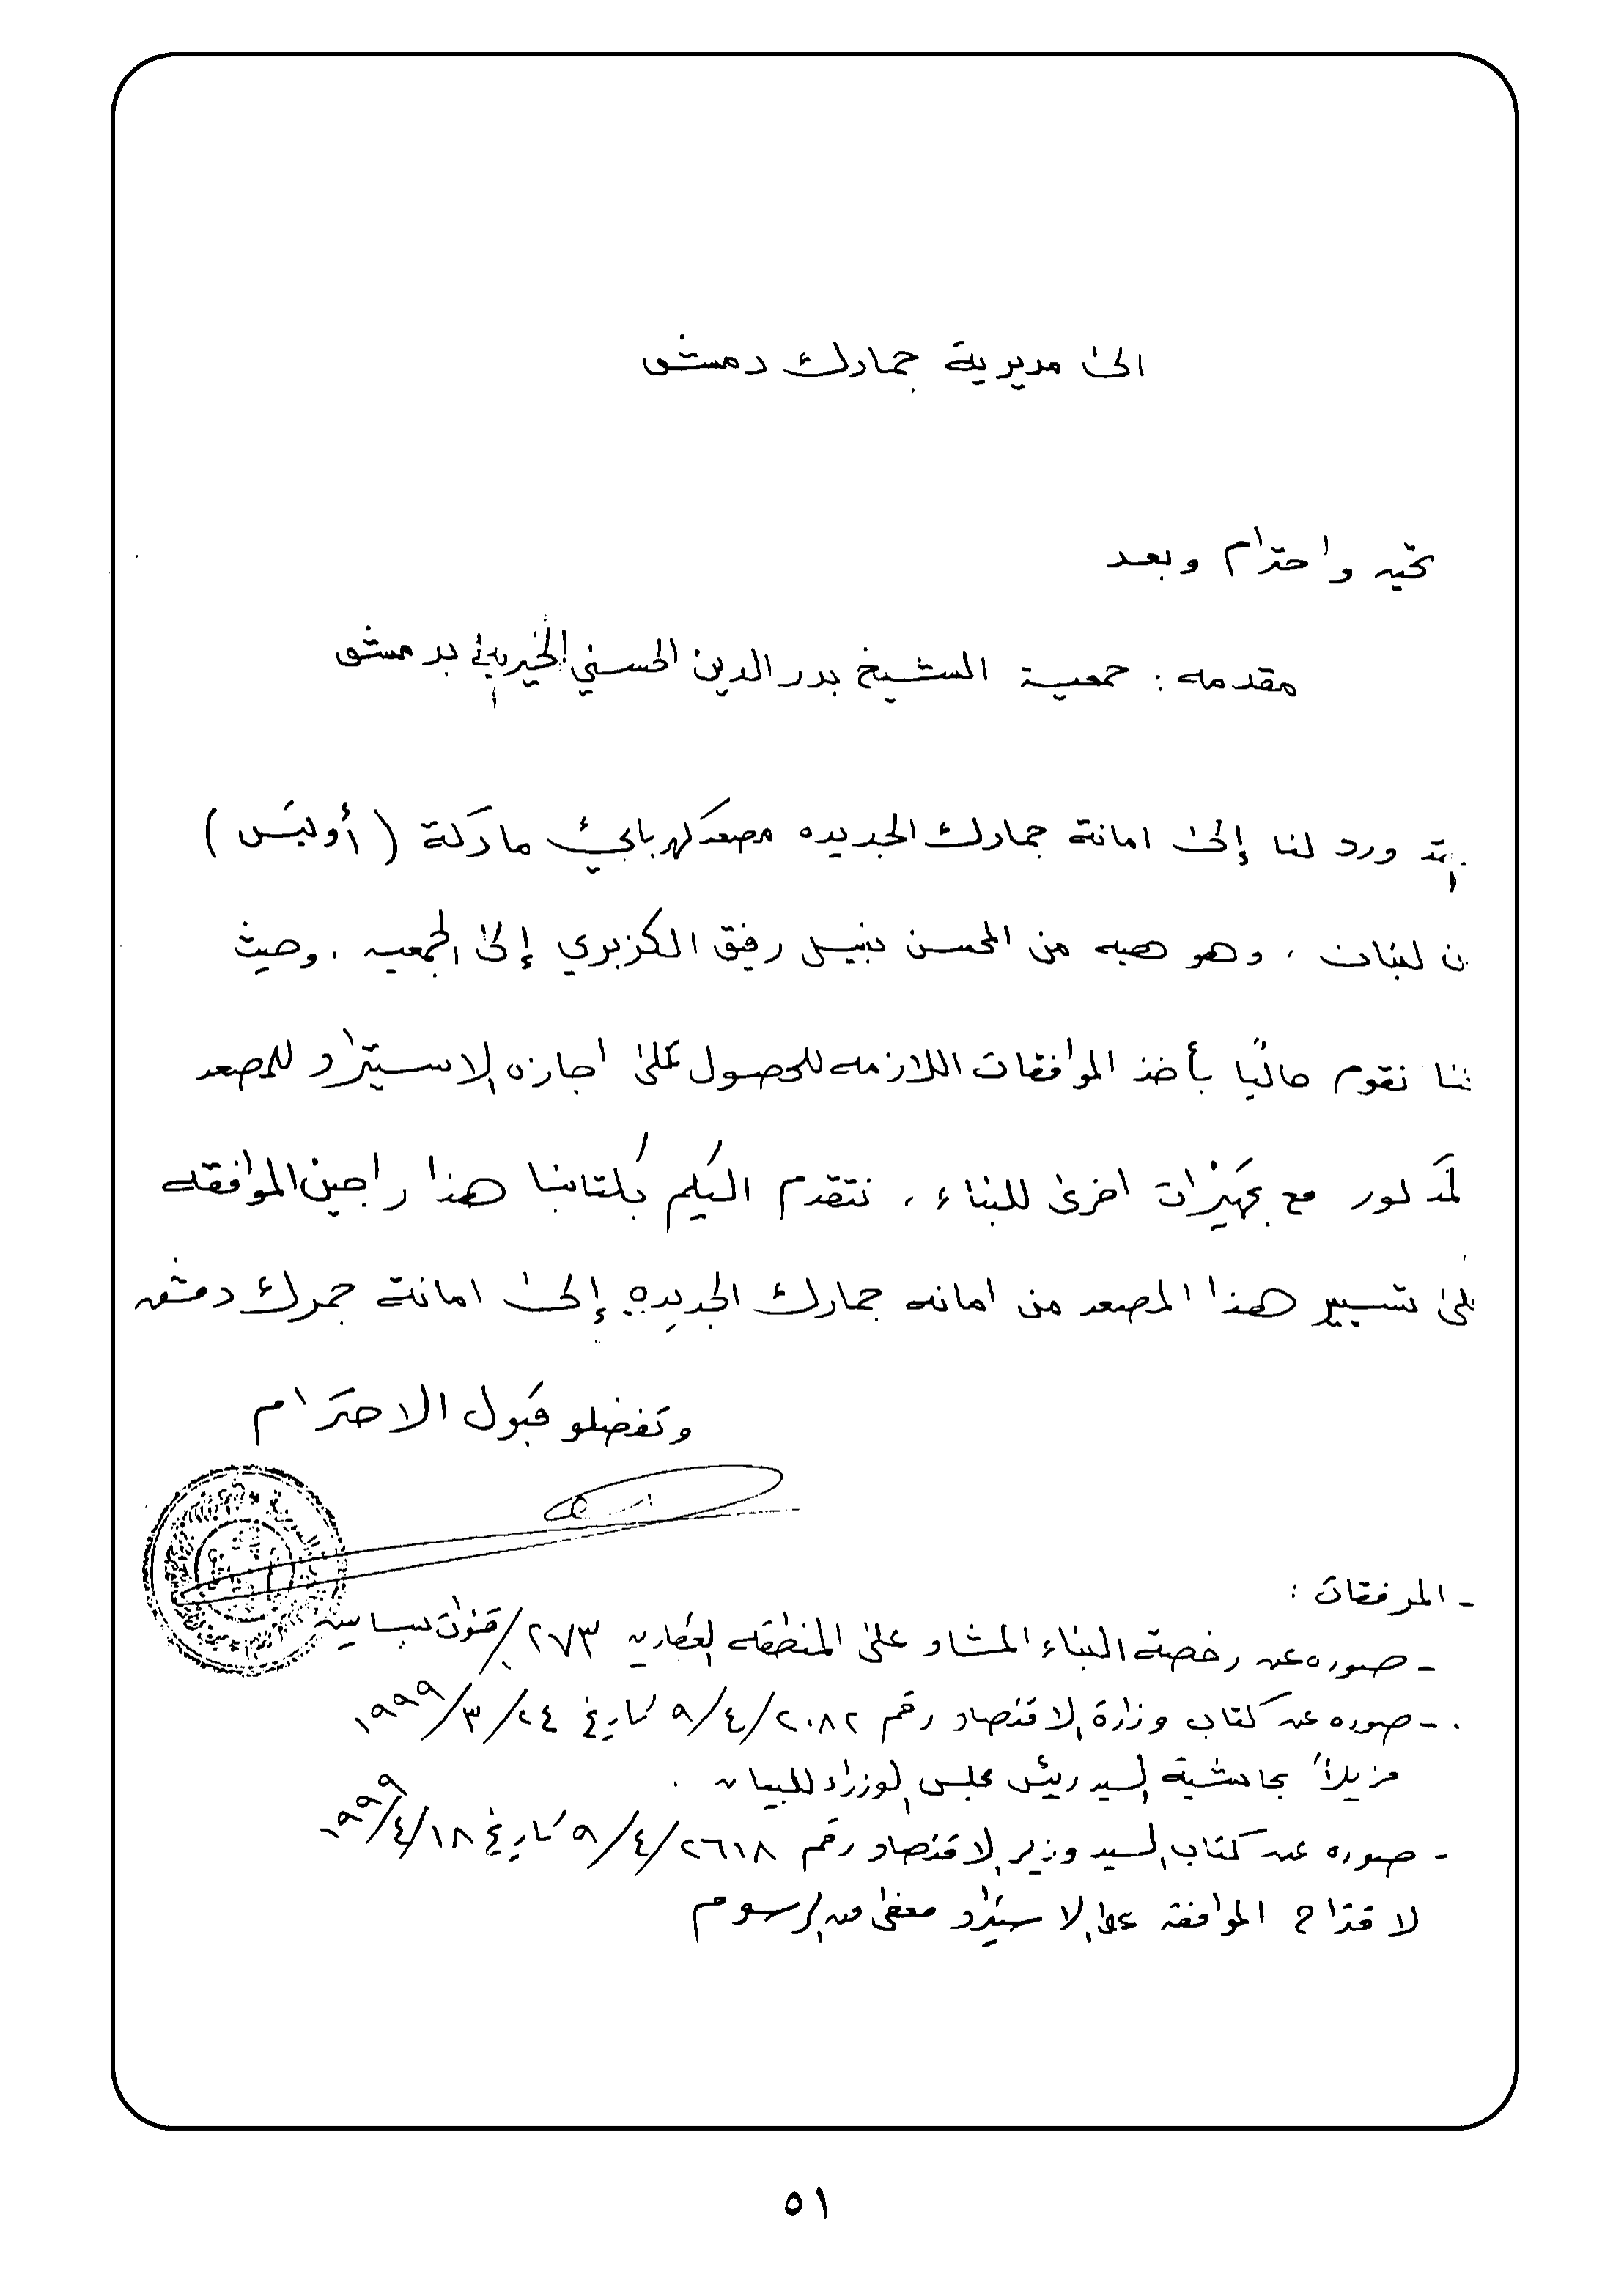 الى مديرية جمارك دمشق
تحيه واحترام وبعد
مقدمه : جمعية الشيخ بدر الدين الحسني الخيرية بدمشق
ورد لنا إلى امانة جمارك الجديده مصعد كهربائي ماركة (أوتيس)
ن لبنان ، وهو هبه من المحسن نبيل رفيق الكزبري إلى الجمعيه . وحيث
ننا نقوم حاليًا بأخذ الموافقات اللازمه للحصول على اجازه الاستيراد للمصعد
لمذكور مع تجهيزات اخرى للبناء ، نتقدم اليكم بكتابنا هذا راجين الموافقه
لى تسيير هذا المصعد من امانه جمارك الجديده إلى امانة جمرك دمشق
وتفضلو قبول الاحترام
- المرفقات :
- صوره عن رخصة البناء المشاد على المنطقه العقاريه ٢٧٣/ قنوات بساتين
- صوره عن كتاب وزارة الاقتصاد رقم ٩/٤/٢٠٨٢ تاريخ ٢٤/٣/١٩٩٩
مزيلاً بحاشية السيد رئيس مجلس الوزراء للبيان .
- صوره عن كتاب السيد وزير الاقتصاد رقم ٩/٤/٢٦١٨ تاريخ ١٨/٤/١٩٩٩
لاقتراح الموافقه على الاستيراد معفى من الرسوم
٥١